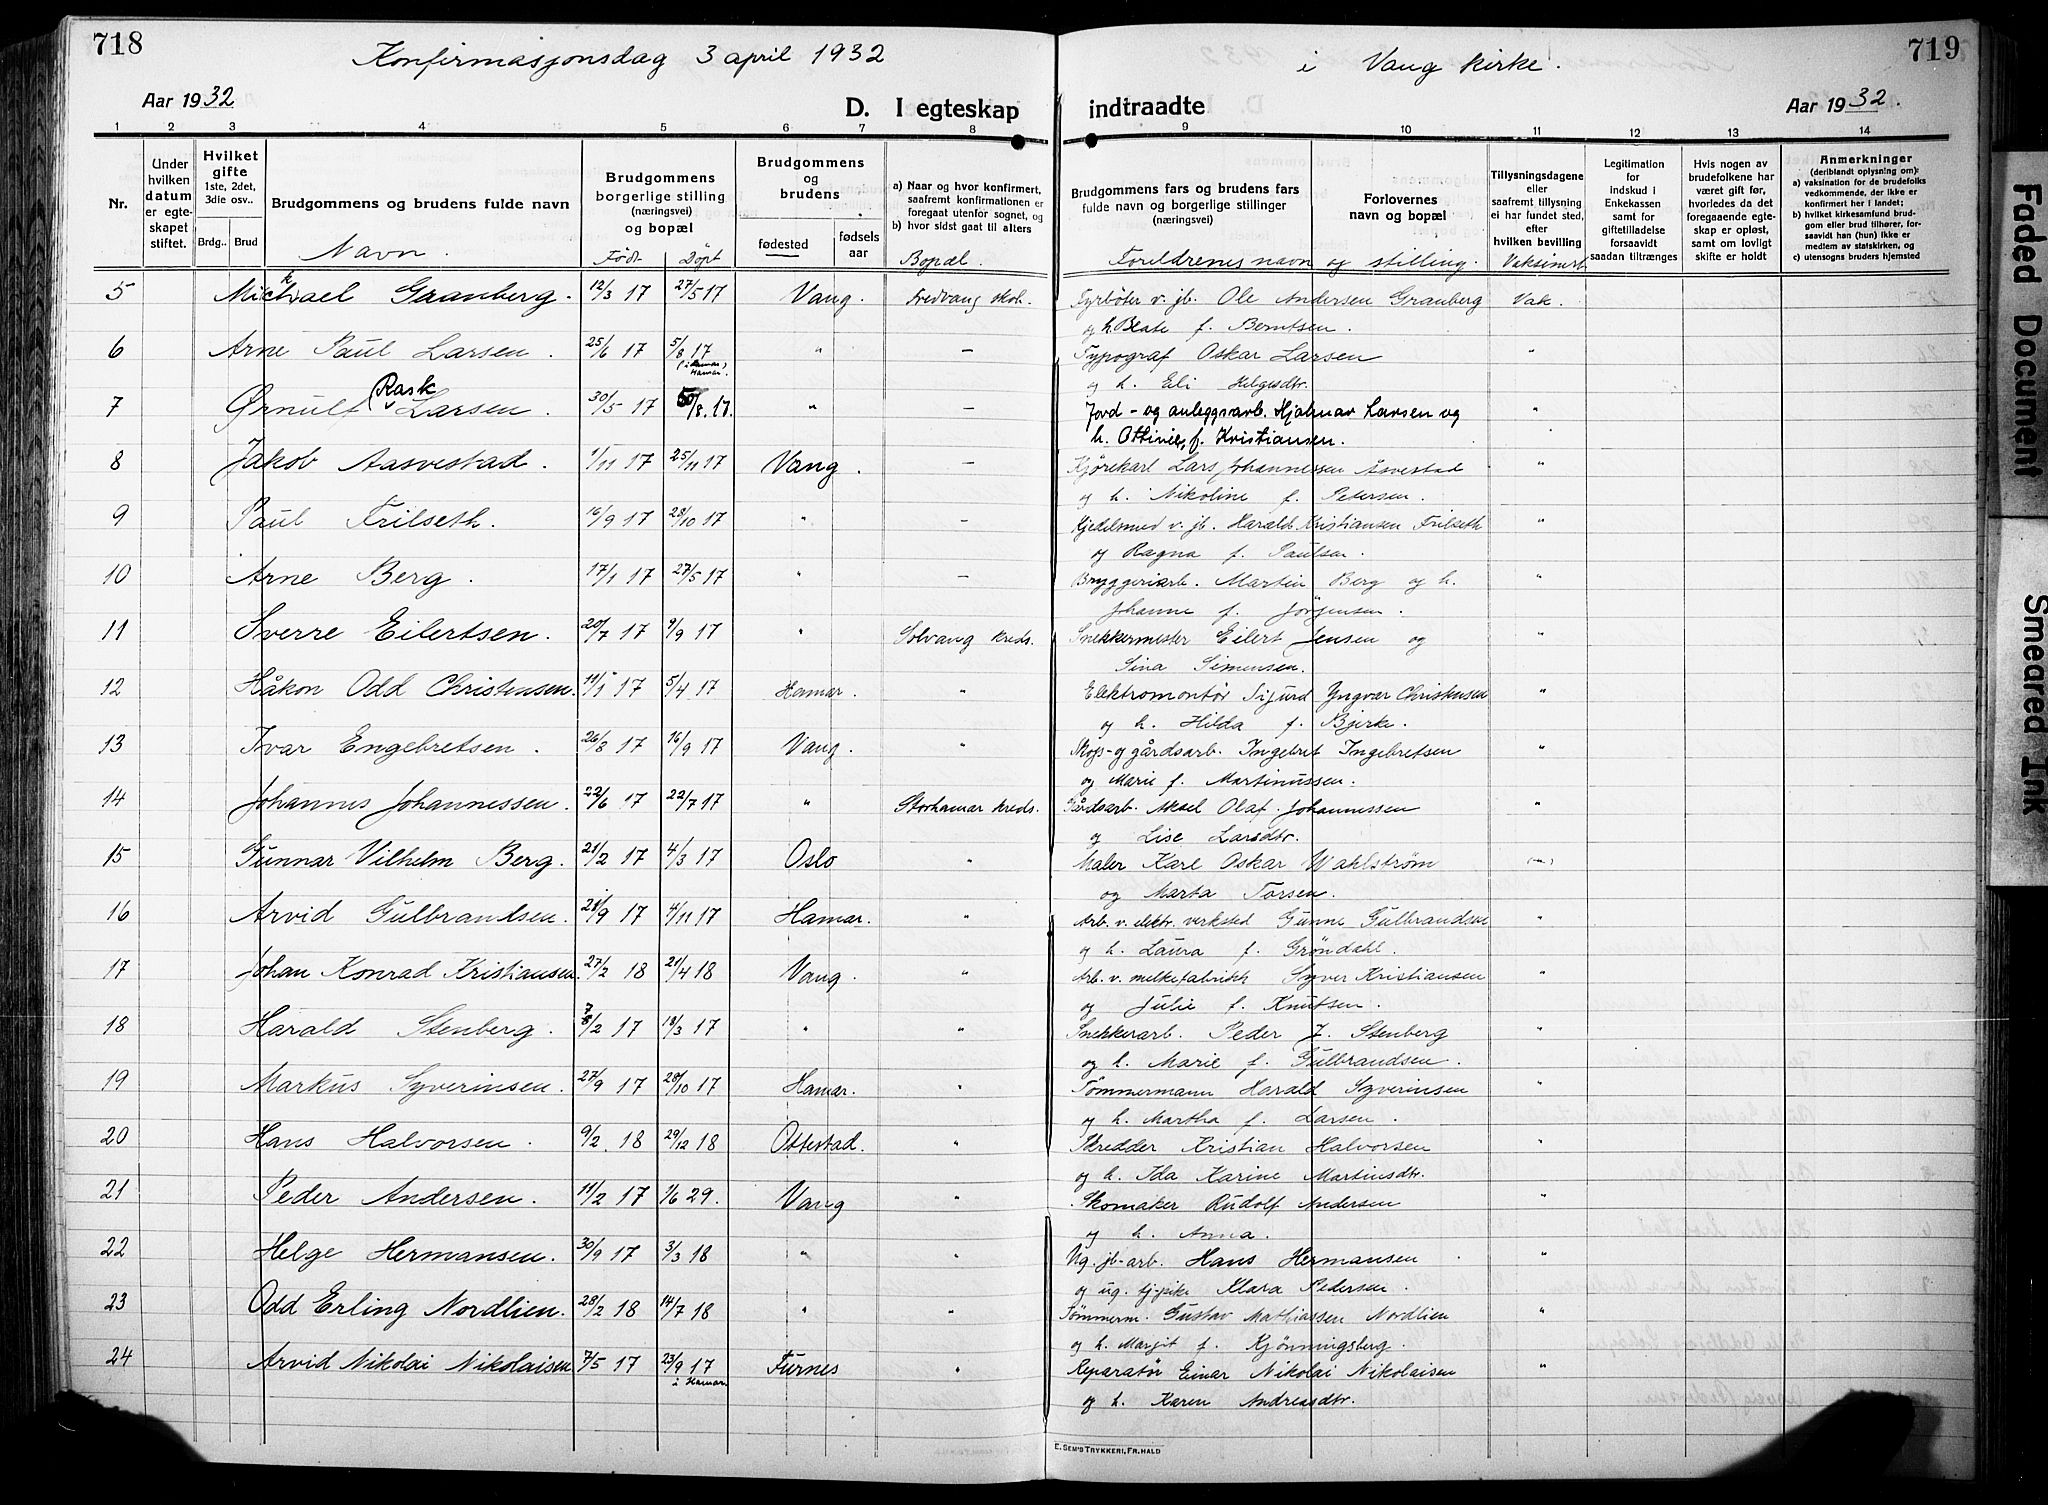 718
719
Konfirmasjonsdag 3 april 1932 i Vang kirke.
Aar 1932 D. I egteskap indtraadte Aar 1932.
1 2 3 4 5 6 7 8 9 10 11 12 13 14
Nr.
Under hvilken datum er egteskapet stiftet.
Hvilket gifte 1ste, 2det, 3die osv..
Brdg.. Brud
Brudgommens og brudens fulde navn
Navn.
Brudgommens borgerlige stilling (næringsvei) og bopæl
Født Döpt
Brudgommens og brudens
fødested
fødsels aar
a) Naar og hvor konfirmert, saafremt konfirmationen er foregaat utenfor sognet, og
b) hvor sidst gaat til alters
Bopæl.
Brudgommens fars og brudens fars fulde navn og borgerlige stillinger (næringsvei)
Forlovernes navn og bopæl
Foreldrenes navn og stilling.
Tillysningsdagene eller saafremt tillysning ei har fundet sted, efter hvilken bevilling
Vaksinert
Legitimation for indskud i Enkekassen samt for giftetilladelse forsaavidt saadan tiltrænges
Hvis nogen av brudefolkene har været gift før, hvorledes da det foregaaende egteskap er opløst, samt om lovligt skifte er holdt
Anmerkninger (deriblandt oplysning om):
a) vaksination for de brudefolks vedkommende, der ikke er konfirmert her i landet;
b) hvilket kirkesamfund brudgom eller brud tilhører, forsaavidt han (hun) ikke er medlem av statskirken, og
c) utensogns bruders hjemsted
5 Michael Granberg. 12/3 17 27/5 17 Vang. Fredvang skol. Fyrbøter v. jb. Ole Andersen Granberg Vak.
og h. Beate f. Berntsen.
6 Arne Paul Larsen. 25/6 17 5/8 17 " — Typograf Oskar Larsen "
(i Hamar)
og h. Eli Helgesdtr.
7 Ørnulf Rask Larsen. 30/5 17 /8.17. " — Jord- og anleggsarb. Hjalmar Larsen og "
h. f. Kristiansen.
8 Jakob Aasvestad. 1/11 17 25/11 17 Vang. — Kjørekarl Lars Johannessen Åsvestad "
og h. Nikoline f. Petersen.
9 Paul Frilseth. 16/9 17 28/10 17 " — Kjedelsmed v. jb. Harald Kristiansen Frilseth "
og Ragna f. Paulsen.
10 Arne Berg. 17/1 17 27/5 17 " — Bryggeriarb. Martin Berg og h. "
Johanne f. Jörgensen.
11 Sverre Eilertsen. 20/7 17 9/9 17 " Solvang kreds. Snekkermester Eilert Jensen og "
Sina Simensen.
12 Håkon Odd Christensen. 11/1 17 5/4 17 Hamar. " Elektromontör Sigurd Yngvar Christensen "
og h. Hilda f. Bjerke.
13 Ivar Engebretsen. 26/8 17 16/9 17 Vang. " Skogs- og gårdsarb. Ingebret Ingebretsen "
og Marie f. Martinussen.
14 Johannes Johannessen. 22/6 17 22/7 17 " Storhamar kreds. Gårdsarb. Aksel Olaf Johannessen "
og Lise Larsdtr.
15 Gunnar Vilhelm Berg. 21/2 17 4/3 17 Oslo " Maler Karl Oskar Wahlström (—)
og Marta Torsen.
16 Arvid Gulbrandsen. 21/9 17 4/11 17 Hamar. " Arb. v. elektr. verksted Gunne Gulbrandsen "
og h. Laura f. Gröndahl.
17 Johan Konrad Kristiansen. 27/2 18 21/4 18 Vang. " Arb. v. melkefabrikk Syver Kristiansen "
og Julie f. Knutsen.
18 Harald Stenberg. /2 17 18/3 17 " " Snekkerarb. Peder J. Stenberg "
og h. Marie f. Gulbrandsen.
19 Markus Syverinsen. 27/9 17 28/10 17 Hamar. " Tömmermann Harald Syverinsen "
og h. Martha f. Larsen.
20 Hans Halvorsen. 9/2. 18 29/12 18 Ottestad. " Skredder Kristian Halvorsen "
og h. Ida Karine Martinsdtr.
21 Peder Andersen. 11/2 17 1/6 29. Vang " Skomaker Rudolf Andersen "
og h. Anna.
22 Helge Hermansen. 30/9 17 3/3 18 " " Ug. jb-arb. Hans Hermansen "
og ug. tj-pike Klara Pedersen.
23 Odd Erling Nordlien. 28/2 18 14/7 18 " " Tömmerm. Gustav Mathiassen Nordlien "
og h. Margit f. Kjönningsberg.
24 Arvid Nikolai Nikolaisen 7/5 17 23/9 17 Furnes " Reparatör Einar Nikolai Nikolaisen "
i Hamar.
og h. Karen Andreasdtr.
E. SEM'S TRYKKERI, FR.HALD
Faded Document
Smeared Ink